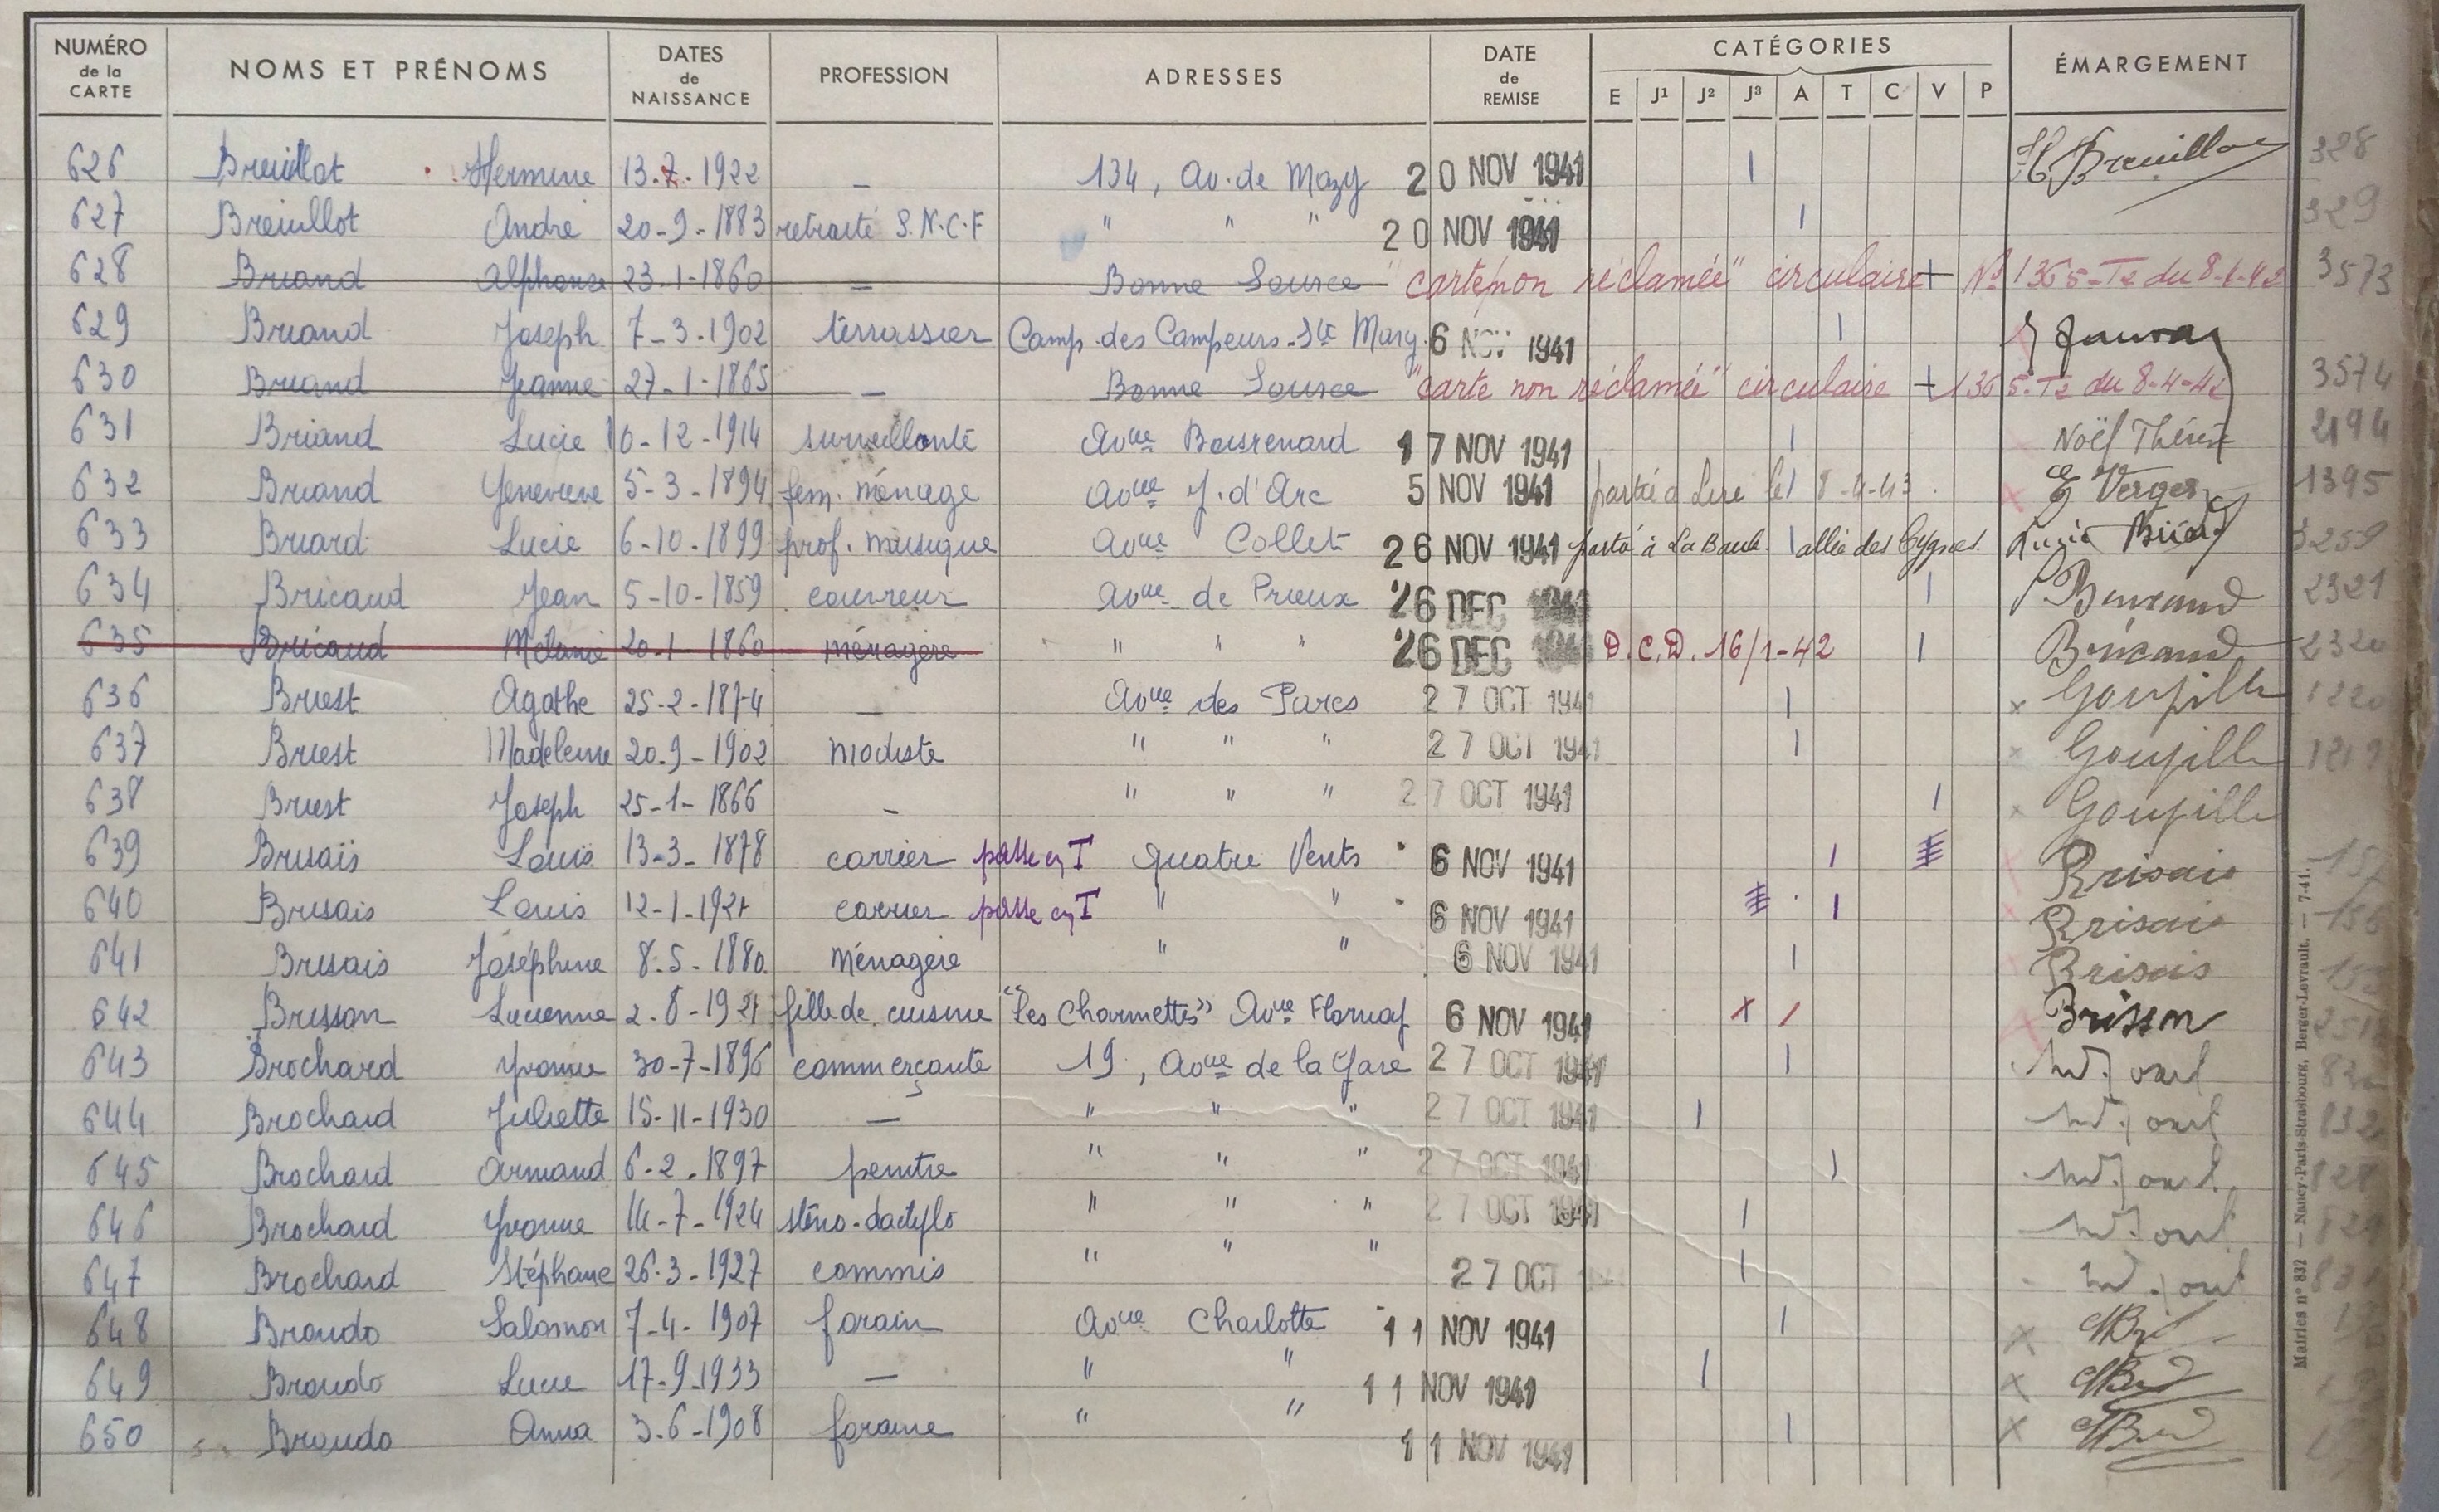 NUMÉRO de la CARTE NOMS ET PRÉNOMS DATES de NAISSANCE PROFESSION ADRESSES DATE de REMISE CATÉGORIES ÉMARGEMENT
E J¹ J² J³ A T C V P
626 Breuillot Hermine 13.7.1922 — 134, Av. de Mazy 20 NOV 1941 | H. Breuillot 328
627 Breuillot André 20-9-1883 retraité S.N.C.F " " " 20 NOV 1941 | 329
628 Briand Alphonse 23-1-1860 — Bonne Source "carte non réclamée" circulaire + N° 1365-T2 du 8-4-42 3573
629 Briand Joseph 7-3-1902 terrassier Camp des Campeurs-Ste Marg. 6 NOV 1941 |
630 Briand Jeanne 27-1-1865 — Bonne Source "carte non réclamée" circulaire + 1365-T2 du 8-4-42 3574
631 Briand Lucie 10-12-1914 surveillante Avue Boisrenard 17 NOV 1941 | Noël Thérèse 2194
632 Briand Geneviève 5-3-1894 fem. ménage Avue J. d'Arc 5 NOV 1941 partie à Lire le 8-4-43 | E Verger 1395
633 Briard Lucie 6-10-1899 prof. musique Avue Collet 26 NOV 1941 partie à La Baule | allée des Cygnes Lucie Briard 3259
634 Bricaud Jean 5-10-1859 couvreur Avue de Prieux 26 DEC 1941 | Bricaud 2321
635 Bricaud Mélanie 20-1-1860 ménagère " " " 26 DEC 1941 D.C.D. 16/1-42 | Bricaud 2320
636 Briest Agathe 25-2-1874 — Avue des Parcs 27 OCT 1941 | x Goupille 1220
637 Briest Madeleine 20.9-1902 modiste " " " 27 OCT 1941 | x Goupille 1219
638 Briest Joseph 25-1-1866 — " " " 27 OCT 1941 | x Goupille
639 Brisais Louis 13-3-1878 carrier passe en T Quatre Vents 6 NOV 1941 | Brisais
640 Brisais Louis 12-1-1921 carrier passe en T " " 6 NOV 1941 | Brisais 156
641 Brisais Joséphine 8.5.1880 Ménagère " " 6 NOV 1941 | Brisais
642 Brisson Lucienne 2-8-1921 fille de cuisine "Les Charmettes" Avue Flornoy 6 NOV 1941 x / Brisson
643 Brochard Yvonne 30-7-1896 commerçante 19, Avue de la Gare 27 OCT 1941 |
644 Brochard Juliette 15-11-1930 — " " " 27 OCT 1941 | 832
645 Brochard Armand 6-2-1897 peintre " " " 27 OCT 1941 |
646 Brochard Yvonne 14-7-1924 sténo-dactylo " " " 27 OCT 1941 |
647 Brochard Stéphane 26-3-1927 commis " " " 27 OCT |
648 Broudo Salomon 7-4-1907 forain Avue Charlotte 11 NOV 1941 | x
649 Broudo Lucie 17-9-1933 — " " 11 NOV 1941 | x
650 Broudo Anna 3-6-1908 foraine " " 11 NOV 1941 | x
Mairies n° 832 — Nancy-Paris-Strasbourg, Berger-Levrault. — 7-41.